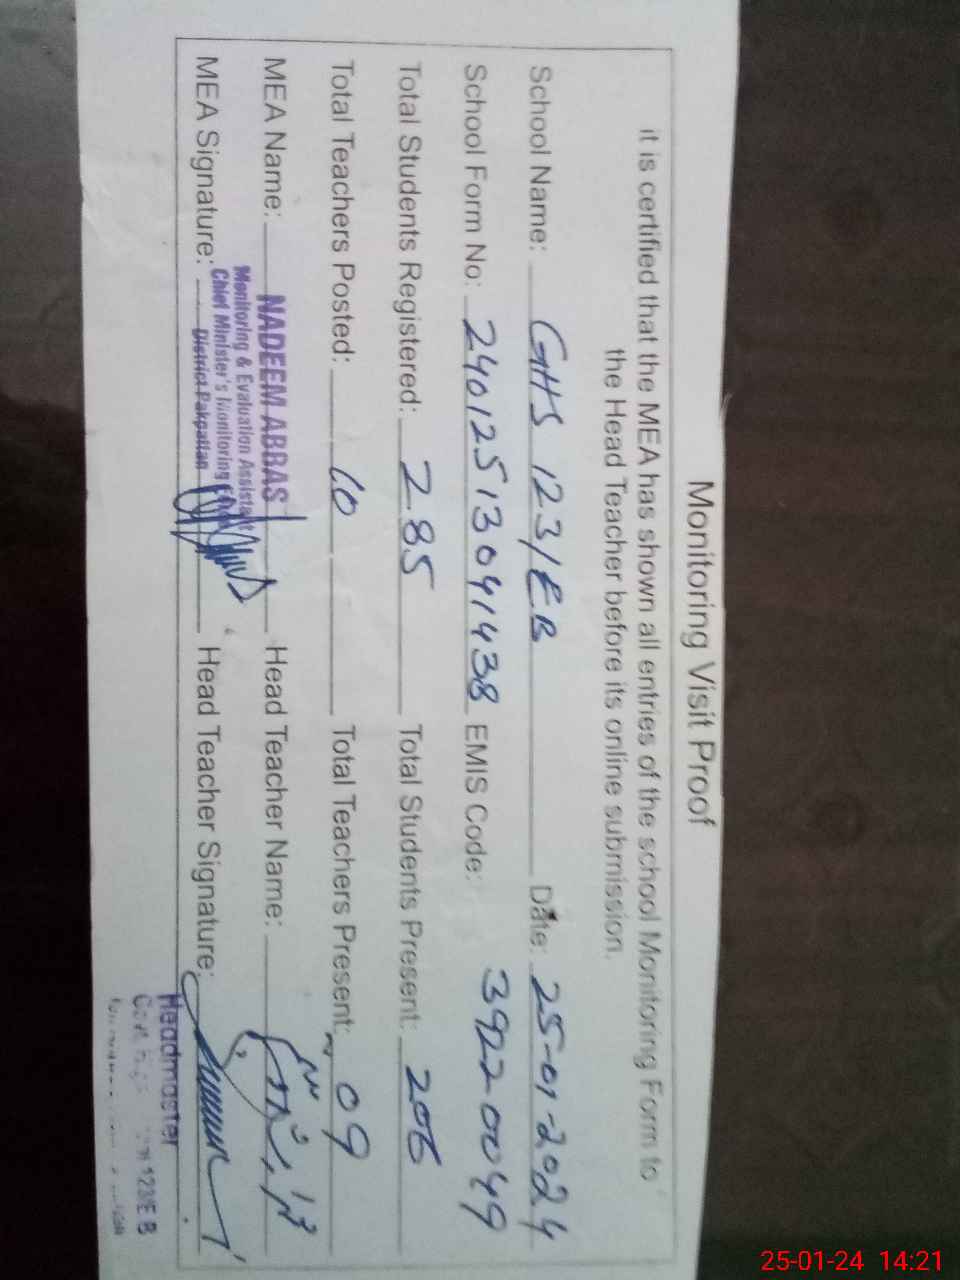 Monitoring Visit Proof
it is certified that the MEA has shown all entries of the school Monitoring Form to
the Head Teacher before its online submission.
School Name: GHS 123/EB Date: 25-01-2024
School Form No: 24012513041438 EMIS Code: 39220049
Total Students Registered: 285 Total Students Present: 206
Total Teachers Posted: 10 Total Teachers Present: 09
MEA Name: NADEEM ABBAS Head Teacher Name:
Monitoring & Evaluation Assistant
Chief Minister's Monitoring
MEA Signature: District Pakpattan Head Teacher Signature:
Headmaster
Govt. 123/E B
25-01-24 14:21